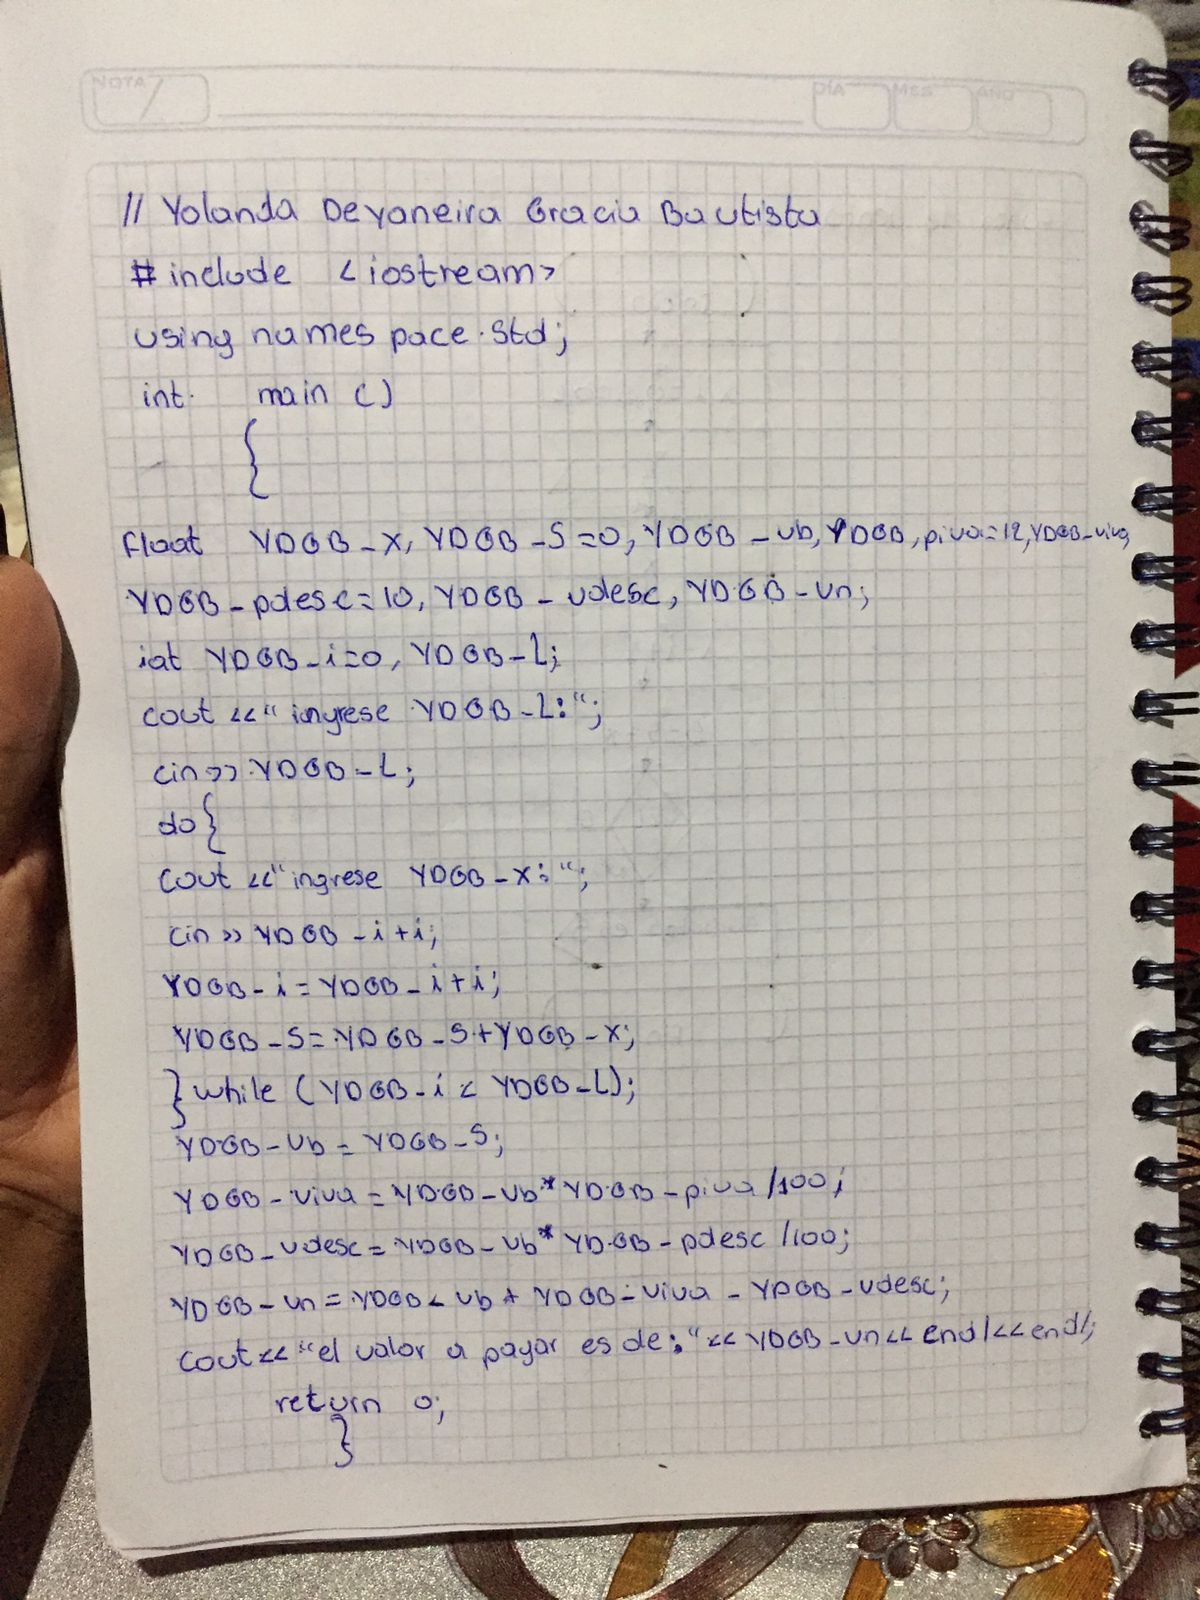 NOTA
DÍA MES AÑO
// Yolanda Deyaneira Gracia Bautista
# include <iostream>
using names pace std;
int main ()
{
float YDGB-x, YDGB-S=0, YDGB-vb, YDGB, piva=12, YDGB-viva,
YDGB-pdesc=10, YDGB-vdesc, YDGB-vn;
iat YDGB-i=0, YDGB-L;
cout <<" ingrese YDGB-L:";
cin>> YDGB-L;
do{
cout <<"ingrese YDGB-x:";
cin >> YDGB-i+i;
YDGB-i=YDGB-i+i;
YDGB-S=YDGB-S+YDGB-x;
}while (YDGB-i< YDGB-L);
YDGB-vb = YDGB-S;
YDGB-viva=YDGB-vb*YDGB-piva/100;
YDGB-vdesc=YDGB-vb* YDGB-pdesc /100;
YDGB-vn=YDGB-vb+ YDGB-viva - YDGB-vdesc;
cout<< "el valor a pagar es de:"<< YDGB-vn<< endl<<endl;
return 0;
}